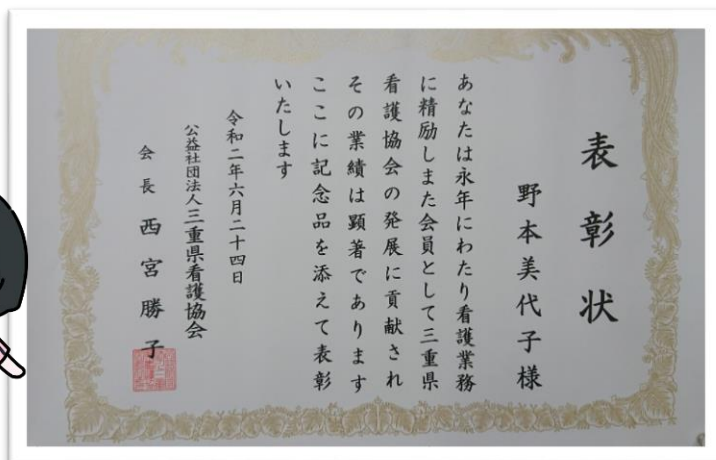 表彰状
野本美代子様
あなたは永年にわたり看護業務
に精励しまた会員として三重県
看護協会の発展に貢献され
その業績は顕著であります
ここに記念品を添えて表彰
いたします
令和二年六月二十四日
公益社団法人三重県看護協会
会長 西宮勝子